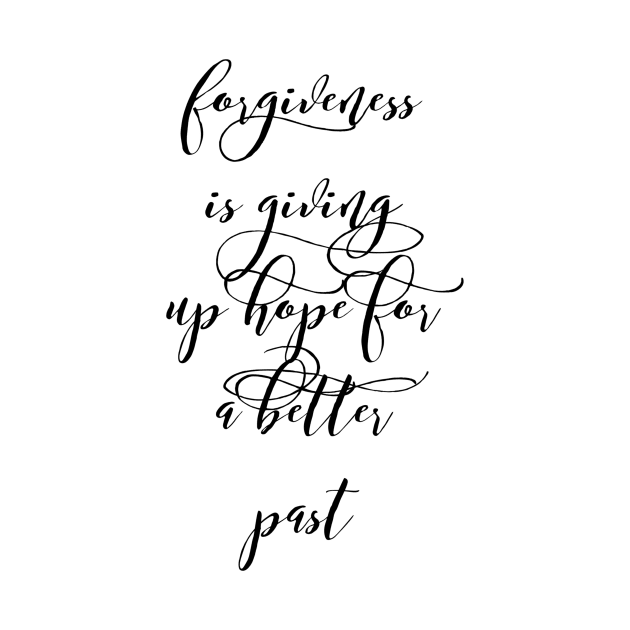 forgiveness
is giving
up hope for
a better
past